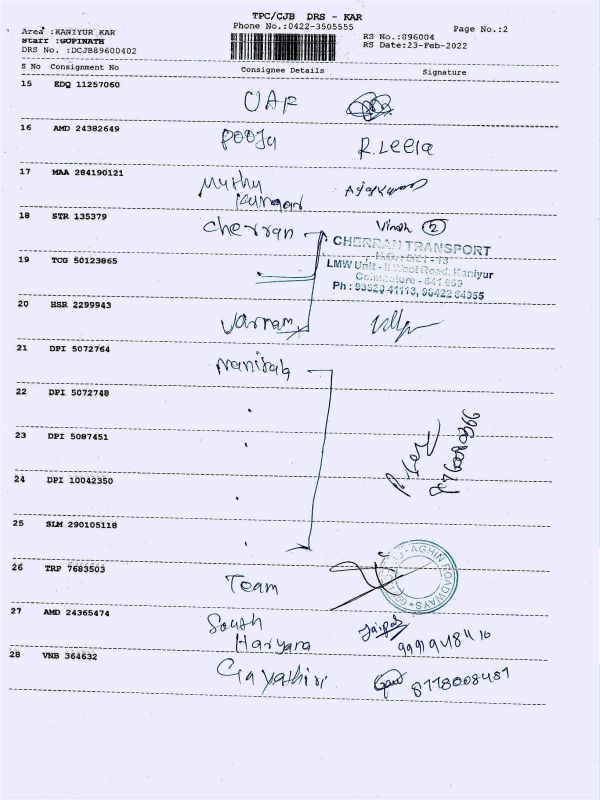 TPC/CJB DRS - KAR
Area :KANIYUR KAR
Phone No.:0422-3505555
Page No.:2
Staff :GOPINATH
RS No.:896004
DRS No. :DCJB89600402
RS Date:23-Feb-2022
S No Consignment No Consignee Details Signature
15 EDQ 11257060 UAF
16 AMD 24382649 Pooja R.Leela
17 MAA 284190121 Muthu
Kumaran
18 STR 135379 Cherran Vinoh 2
CHERRAN TRANSPORT
LMW Unit - II West Road, Kaniyur
Coimbatore - 641 659
19 TCG 50123865
Ph : 93620 41113, 90422 84355
20 HSR 2299943 Varnam
21 DPI 5072764 Manisab
22 DPI 5072748
23 DPI 5087451
24 DPI 10042350
25 SLM 290105118
26 TRP 7683503 Team
AGHIN ROADWAYS
27 AMD 24365474 South
Haryana
28 VNB 364632 Gayathiri 8778008487